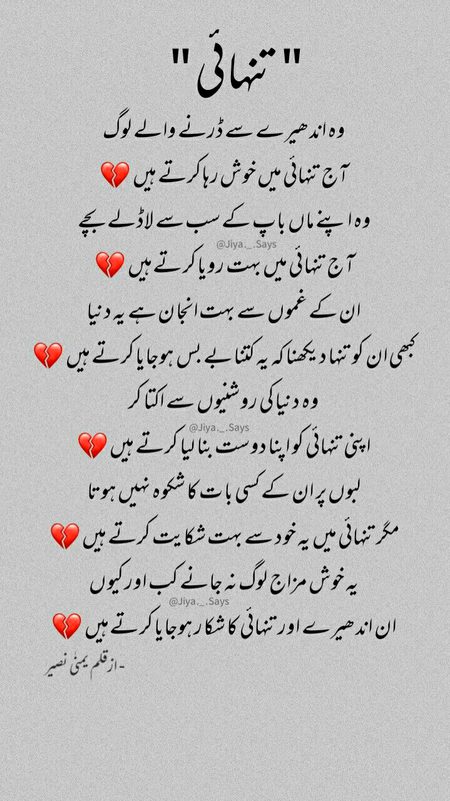 "تنہائی"
وہ اندھیرے سے ڈرنے والے لوگ
آج تنہائی میں خوش رہا کرتے ہیں 💔
وہ اپنے ماں باپ کے سب سے لاڈلے بچے
@Jiya._.Says
آج تنہائی میں بہت رویا کرتے ہیں 💔
ان کے غموں سے بہت انجان ہے یہ دنیا
کبھی ان کو تنہا دیکھنا کہ یہ کتنا بے بس ہو جایا کرتے ہیں 💔
وہ دنیا کی روشنیوں سے اکتا کر
@Jiya._.Says
اپنی تنہائی کو اپنا دوست بنا لیا کرتے ہیں 💔
لبوں پر ان کے کسی بات کا شکوہ نہیں ہوتا
مگر تنہائی میں یہ خود سے بہت شکایت کرتے ہیں 💔
یہ خوش مزاج لوگ نہ جانے کب اور کیوں
@Jiya._.Says
ان اندھیرے اور تنہائی کا شکار ہو جایا کرتے ہیں 💔
-از قلم یمنیٰ نصیر